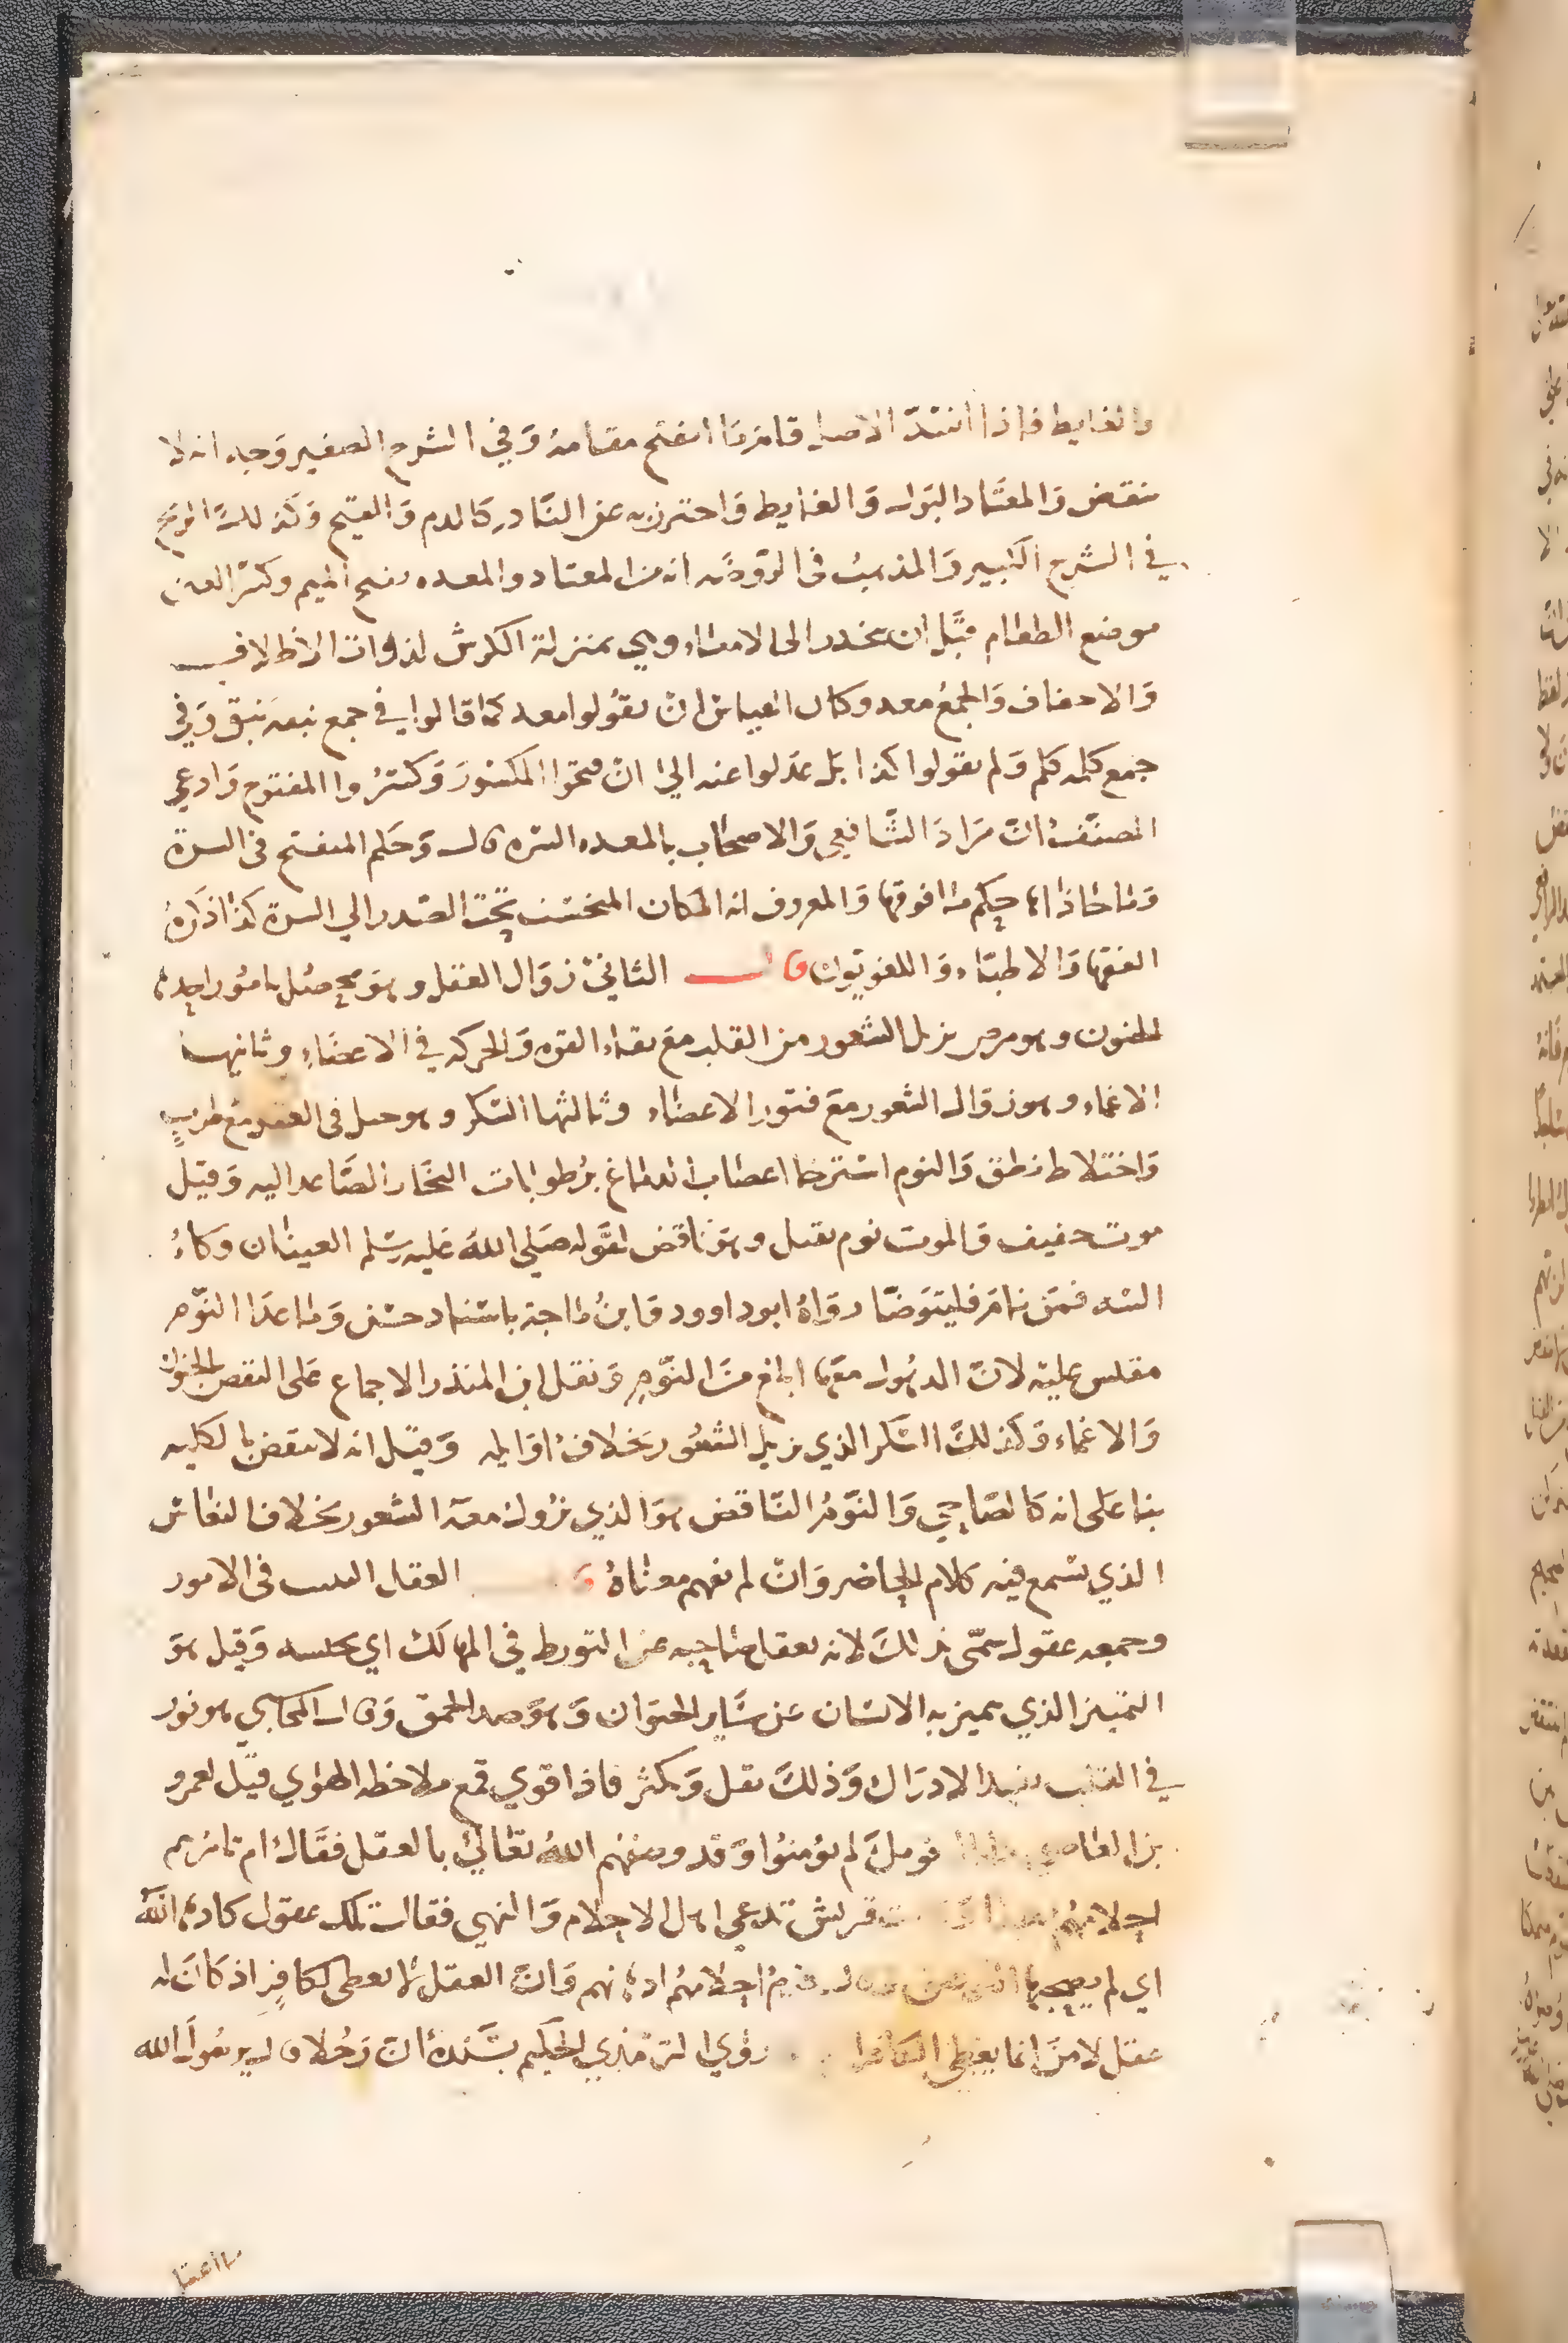 والغايط فاذا انسد الاصلي قام ما انفتح مقامه وفي الشرح الصغير وجه انه لا
ينقض والمعتاد البول والغايط واحترز به عن النادر كالدم والقيح وكذلك الريح
في الشرح الكبير والمذهب في الروضه انه من المعتاد والمعده بفتح الميم وكسر العين
موضع الطعام قبل ان ينحدر الى الامعاء وهي بمنزلة الكرش لذوات الاظلاف
والاخفاف والجمع معد وكان القياس ان يقولوا معد كما قالوا في جمع نبقه نبق وفي
جمع كلمه كلم ولم يقولوا كذا بل عدلوا عنه الي ان فتحوا المكسور وكسروا المفتوح وادعي
المصنف ان مراد الشافعي والاصحاب بالمعده السره قال وحكم المنفتح في السرة
وما حاذاها حكم ما فوقها والمعروف انه المكان المنخسف تحت الصدر الي السرة كذا ذكره
الفقها والاطباء واللغويون قال الثاني زوال العقل وهو يحصل بامور احدها
الجنون وهو مرض يزيل الشعور من القلب مع بقاء القوه والحركه في الاعضاء وثانيها
الاغماء وهو زوال الشعور مع فتور الاعضاء وثالثها السكر وهو خبل في العقل مع طرب
واختلاط نطق والنوم استرخا اعصاب الدماغ برطوبات البخار الصاعد اليه وقيل
موت خفيف والموت نوم ثقيل وهو ناقض لقوله صلي الله عليه وسلم العينان وكاء
السه فمن نام فليتوضا رواه ابو داوود وابن ماجة باسناد حسن وما عدا النوم
مقيس عليه لان الذهول معها ابلغ من النوم ونقل ابن المنذر الاجماع على النقض بالجنون
والاغماء وكذلك السكر الذي يزيل الشعور بخلاف اوايله وقيل انه لا ينقض بالكليه
بنا على انه كالصاحي والنوم الناقض هو الذي يزول معه الشعور بخلاف النعاس
الذي يسمع فيه كلام الحاضر وان لم يفهم معناه العقل التثبت في الامور
وجمعه عقول سمى بذلك لانه يعقل صاحبه عن التورط في المهالك اي يحبسه وقيل هو
التمييز الذي يتميز به الانسان عن ساير الحيوان وهو ضد الحمق وقال المحاسبي هو نور
في القلب يفيد الادراك وذلك يقل ويكثر فاذا قوي قمع ملاحظه الهوي قيل لعمرو
بن العاصي ما بال قومك لم يؤمنوا وقد وصفهم الله تعالى بالعقل فقال ام تامرهم
احلامهم بهذا وكانت قريش تدعى اهل الاحلام والنهي فقال تلك عقول كادها الله
اي لم يصحبها التوفيق احلامهم اذهانهم وان العقل لا يعطى لكافر اذ كان له
عقل لامن انما يعطى الكافر روي الترمذي الحكيم بسنده ان رجلا قال يرسول الله
ما اعقل